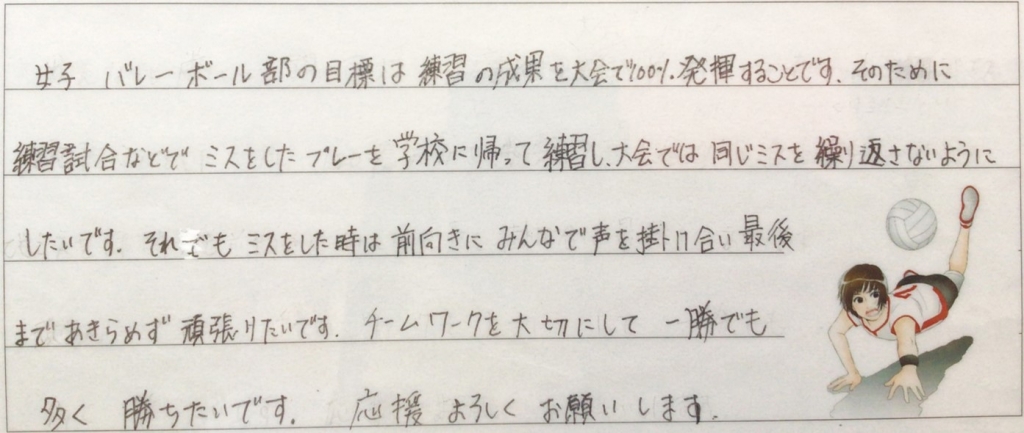 女子 バレーボール部の目標は練習の成果を大会で100%発揮することです。そのために
練習試合などでミスをしたプレーを学校に帰って練習し、大会では同じミスを繰り返さないように
したいです。それでもミスをした時は前向きにみんなで声を掛け合い最後
まであきらめず頑張りたいです。チームワークを大切にして一勝でも
多く勝ちたいです。応援よろしくお願いします。